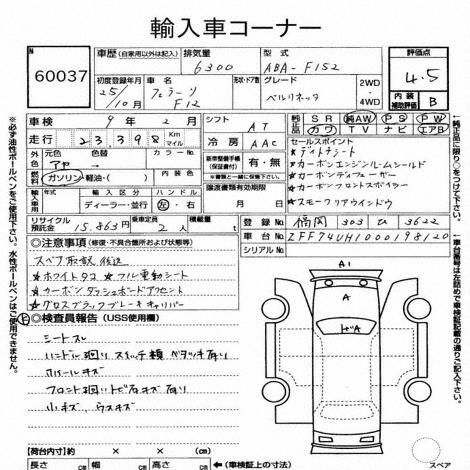 輸入車コーナー
No 60037
車歴 (自家用以外は記入)
排気量 6300
型式 ABA-F152
評価点 4.5
内装補助評価 B
初度登録年月 25/10月
車名 フェラーリ F12
形状・ドア数
グレード ベルリネッタ
2WD・4WD
車検 9年2月
シフト AT
純正品 SR 純AW PS PW
カワ TV ナビ エアB
走行 23,398 Km マイル
冷房 AAC
セールスポイント
★デイトナシート
★カーボンエンジンルームシールド
★カーボンディフューザー
★カーボンフロントスポイラー
★スモークリアウインドウ
外色 元色 色替
カラーNo.
新車整備手帳(保証書有無) 有・無
燃料 ガソリン 軽油・( )
内装色
輸入車用 ディーラー・並行
ハンドル 左・右
譲渡書類有効期限 月 日
リサイクル預託金 15,863円
乗車定員 2人
積載量 t
登録No. 福岡 303 ひ 3622
車台No. ZFF74UHJ000198120
シリアルNo.
◎注意事項(修復・不具合箇所および状態等)
スペア取説後送
★ホワイトタコ ★フル電動シート
★カーボンダッシュボードアクセント
★グロスブラックブレーキキャリパー
◎検査員報告(USS使用欄)
シートスレ
ハンドル廻りスイッチ類ベタツキ有り
ホイールキズ
フロント廻りトビ石キズ有り
小キズ、ウスキズ
A1
A
トビA
【荷台内寸】 × × (cm)
長さ cm 幅 cm 高さ cm ←(車検証上の寸法)
スペア
※必ず油性ボールペンをご使用下さい。水性ボールペンはご使用できません。